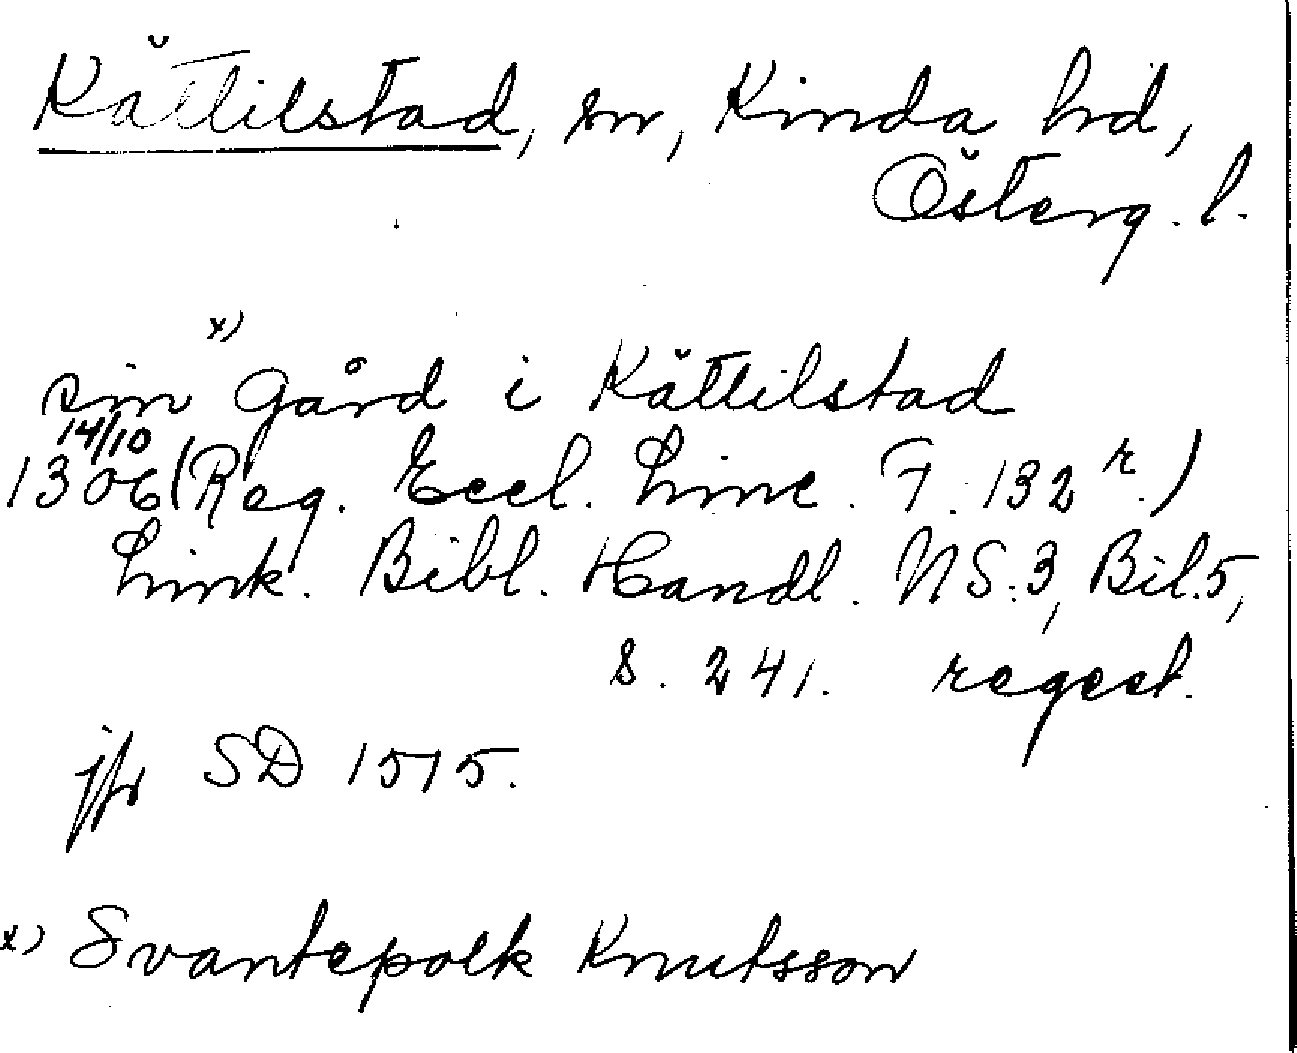 Kättilstad, sn, Kinda hd,
Österg. l.
sin x) gård i Kättilstad
14/10
1306 (Reg. Eccl. Linc. F. 132 r.)
Link. Bibl. Handl. NS:3, Bil.5,
s. 241. regest.
jfr SD 1515.
x) Svantepolk Knutsson